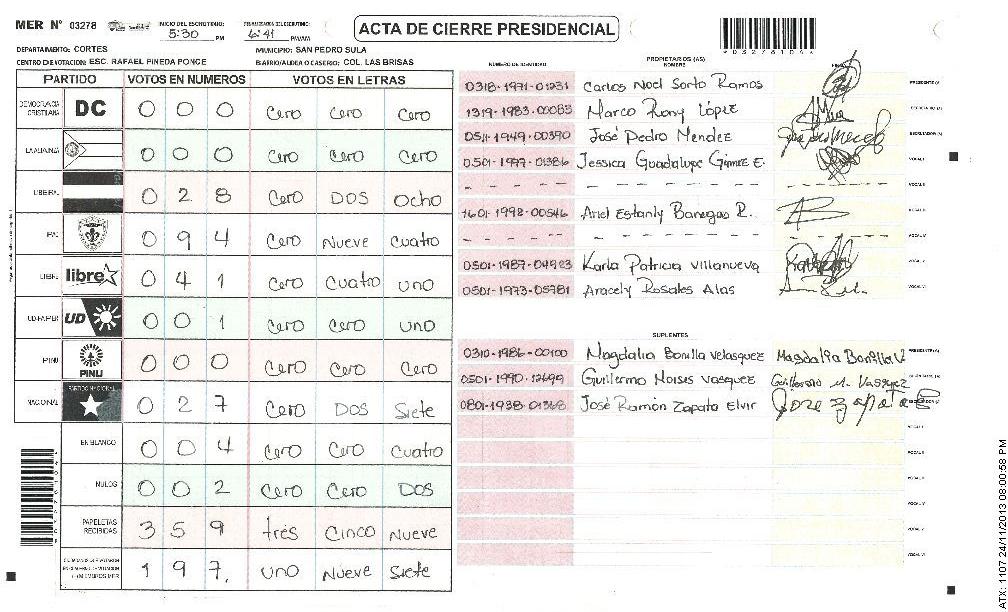 MER N° 03278
INICIO DEL ESCRUTINIO: 5:30 PM
FINALIZACION DEL ESCRUTINIO: 6:41 PM/AM
ACTA DE CIERRE PRESIDENCIAL
DEPARTAMENTO: CORTES
MUNICIPIO: SAN PEDRO SULA
CENTRO DE VOTACION: ESC. RAFAEL PINEDA PONCE
BARRIO/ALDEA O CASERIO: COL. LAS BRISAS
PARTIDO VOTOS EN NUMEROS VOTOS EN LETRAS
DEMOCRACIA CRISTIANA DC 0 0 0 Cero Cero Cero
LA ALIANZA 0 0 0 Cero Cero Cero
LIBERAL 0 2 8 Cero DOS Ocho
PAC 0 9 4 Cero Nueve Cuatro
LIBRE libre 0 4 1 Cero Cuatro uno
UD-FAPER UD 0 0 1 Cero Cero uno
PINU PINU 0 0 0 Cero Cero Cero
NACIONAL PARTIDO NACIONAL 0 2 7 Cero DOS Siete
EN BLANCO 0 0 4 Cero Cero Cuatro
NULOS 0 0 2 Cero Cero DOS
PAPELETAS RECIBIDAS 3 5 9 tres Cinco Nueve
1 9 7. uno Nueve Siete
NUMERO DE IDENTIDAD
PROPIETARIOS (AS)
NOMBRE
FIRMA
0318-1971-01231 Carlos Noel Sorto Ramos PRESIDENTE (A)
1319-1983-00083 Marco Rony López SECRETARIO (A)
0511-1949-00390 José Pedro Mendez ESCRUTADOR (A)
0501-1997-01386 Jessica Guadalupe Gámez E. VOCAL I
- - - - - VOCAL II
1601-1998-00546 Ariel Estanly Banegas R. VOCAL III
- - - - - VOCAL IV
0501-1987-04923 Karla Patricia Villanueva VOCAL V
0501-1973-05781 Aracely Rosales Alas VOCAL VI
SUPLENTES
0310-1986-00100 Magdalia Bonilla Velasquez Magdalia Bonilla V PRESIDENTE (A)
0501-1990-12699 Guillermo Moises Vasquez Guillermo M. Vasquez
0801-1938-01368 José Ramón Zapata Elvir Jose Zapata E ESCRUTADOR (A)
VOCAL I
VOCAL II
VOCAL III
VOCAL IV
VOCAL V
VOCAL VI
ATX: 1107 24/11/2013 08:00:58 PM